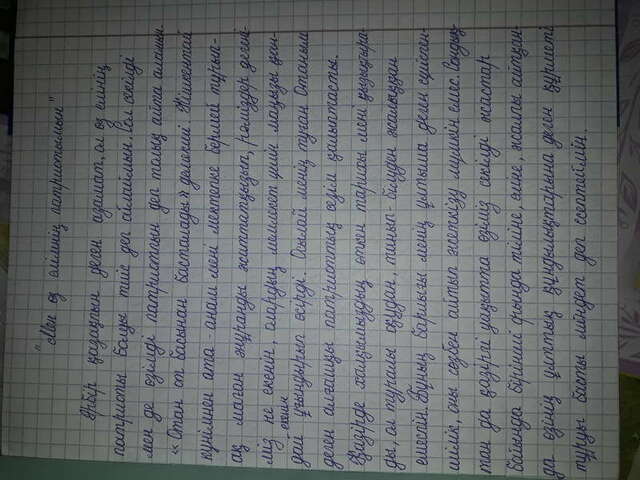 "Мен өз елімнің патриотымын"
Әрбір қазақпын деген азамат, ол өз елінің
патриоты болуы тиіс деп ойлаймын. Сол секілді
мен де өзімді патриотпын деп толық айта аламын.
«Отан от басынан басталады» демекші. Кішкентай
күнімнен ата-анам мені мектепке бермей тұрып-
ақ маған әнұранды жаттатқызып, рәміздер дегені-
міз не екенін, олардың мемлекет үшін маңызы қан-
дай екенін ұғындырып өсірді. Осылай менің туған Отаным
деген алғашқы патриоттық сезім қалыптасты.
Қазірде халқымыздың өткен тарихы мені қызықтыра-
ды, ол туралы оқудан, танып-білуден жалыққан
емеспін. Бұның барлығы менің ұлтыма деген сүйіспен-
шілік, оны сөзбен айтып жеткізу мүмкін емес. Сондық-
тан да қазіргі уақытта өзіміз секілді жастар
бойында бірінші орында тіліне, еліне, жалпы айтқан-
да өзінің ұлттық құндылықтарына деген құрметі
тұруы басты міндет деп есептеймін.